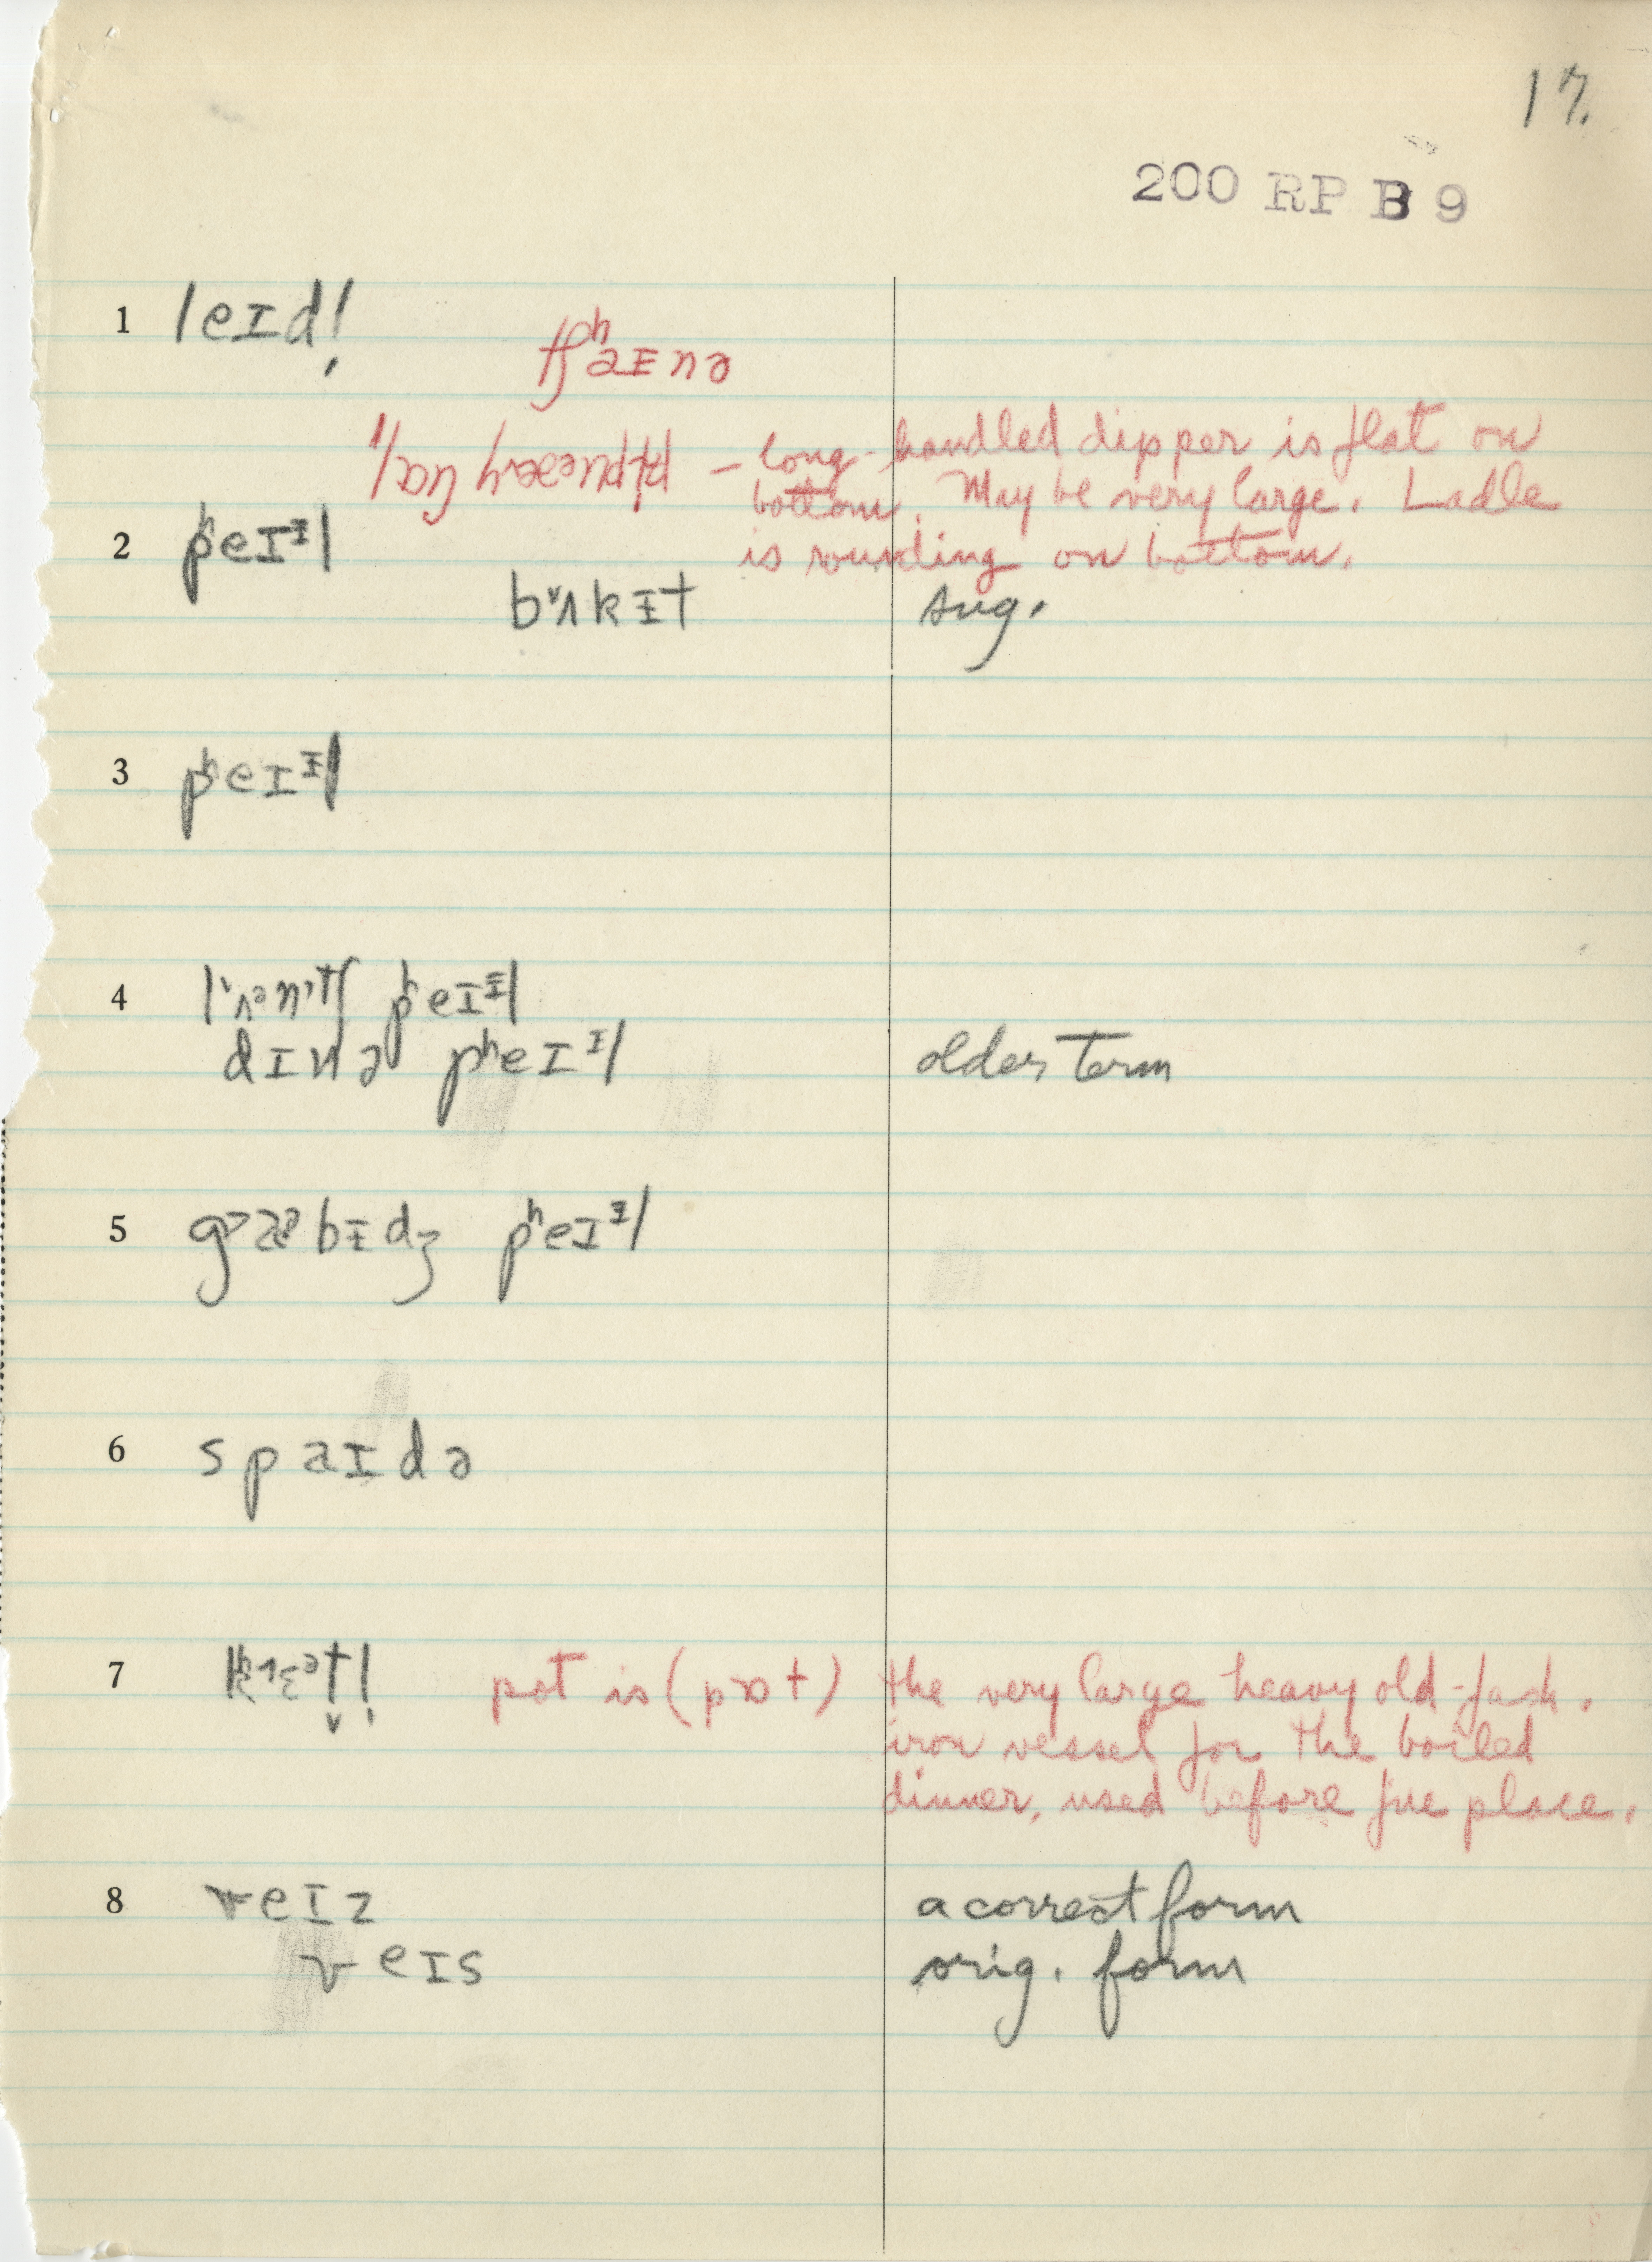 17.
200 RP B 9
1 leɪdl̩
tʃʰaɪnə
– long-handled dipper is flat on
bottom. May be very large. Ladle
is rounding on bottom.
2 pʰeɪᵻl
bʌkᵻt sug.
3 pʰeɪᵻl
4 pʰeɪᵻl
dɪnə pʰeɪᶦl older term
5 bᵻdʒ pʰeɪᵻl
6 spaɪdə
7 pot is (pɒt) the very large heavy old-fash.
iron vessel for the boiled
dinner, used before fire place.
8 veɪz a correct form
veɪs orig. form